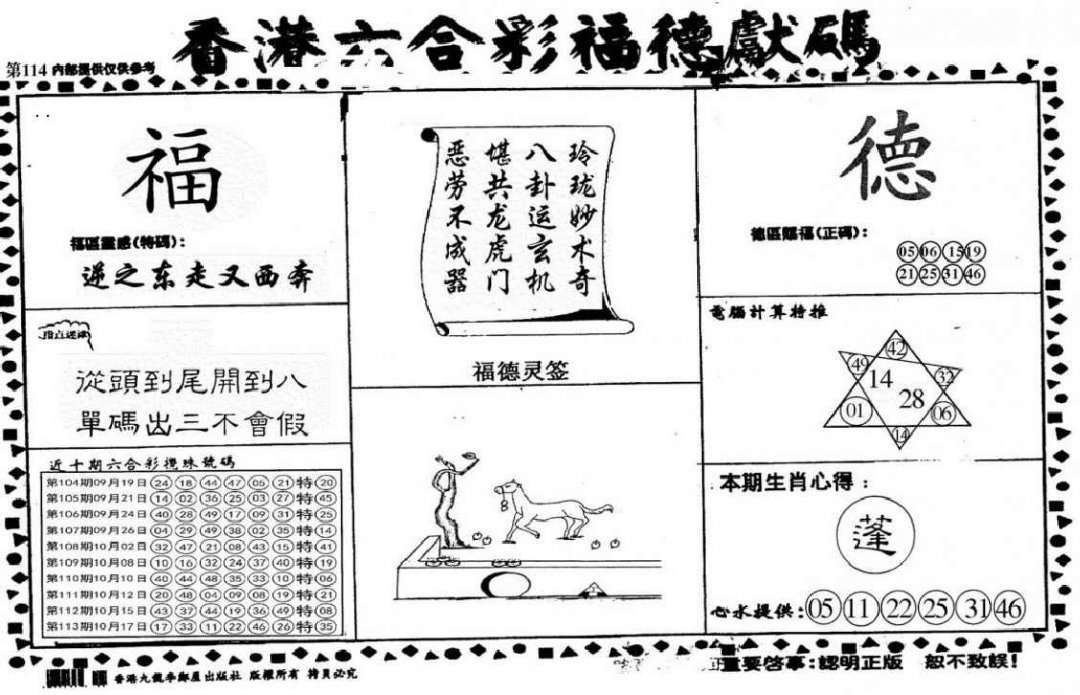 香港六合彩福德獻碼
第114 内部提供仅供参考
福
福區靈感(特碼):
逆之东走又西奔
指点迷津
從頭到尾開到八
單碼出三不會假
近十期六合彩攪珠號碼
第104期09月19日 24 18 44 47 05 21 特 20
第105期09月21日 14 02 36 25 03 27 特 45
第106期09月24日 40 28 49 17 09 31 特 25
第107期09月26日 04 29 49 38 02 35 特 14
第108期10月02日 32 47 21 08 43 15 特 41
第109期10月08日 10 16 32 24 37 40 特 19
第110期10月10日 40 44 48 35 33 10 特 06
第111期10月12日 20 48 04 09 08 19 特 21
第112期10月15日 43 37 44 19 36 49 特 08
第113期10月17日 17 33 11 22 46 26 特 35
玲珑妙术奇
八卦运玄机
堪共龙虎门
恶劳不成器
福德灵签
德
德區賜福(正碼):
05 06 15 19
21 25 31 46
電腦計算特推
42
49 32
14
28
01 06
14
本期生肖心得:
蓬
心水提供: 05 11 22 25 31 46
香港九龍李鄭屋出版社 版權所有 拷貝必究
重要啓事:認明正版 恕不致誤!